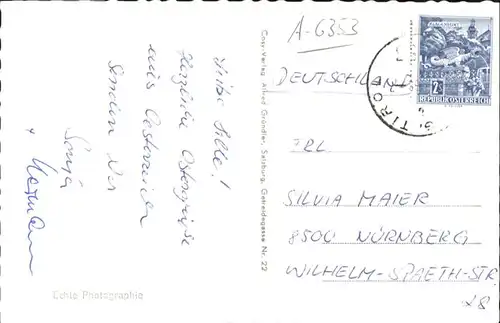 Liebe Silvia!
Herzliche Ostergrüße
aus Österreich
senden Dir
Sonja
+ Hermann
Echte Photographie
Cosy-Verlag Alfred Gründler, Salzburg, Getreidegasse Nr. 22
A-6353
DEUTSCHLAND
TIROL
2 S
REPUBLIK ÖSTERREICH
FRL
SILVIA MAIER
8500 NÜRNBERG
WILHELM-SPAETH-STR
28